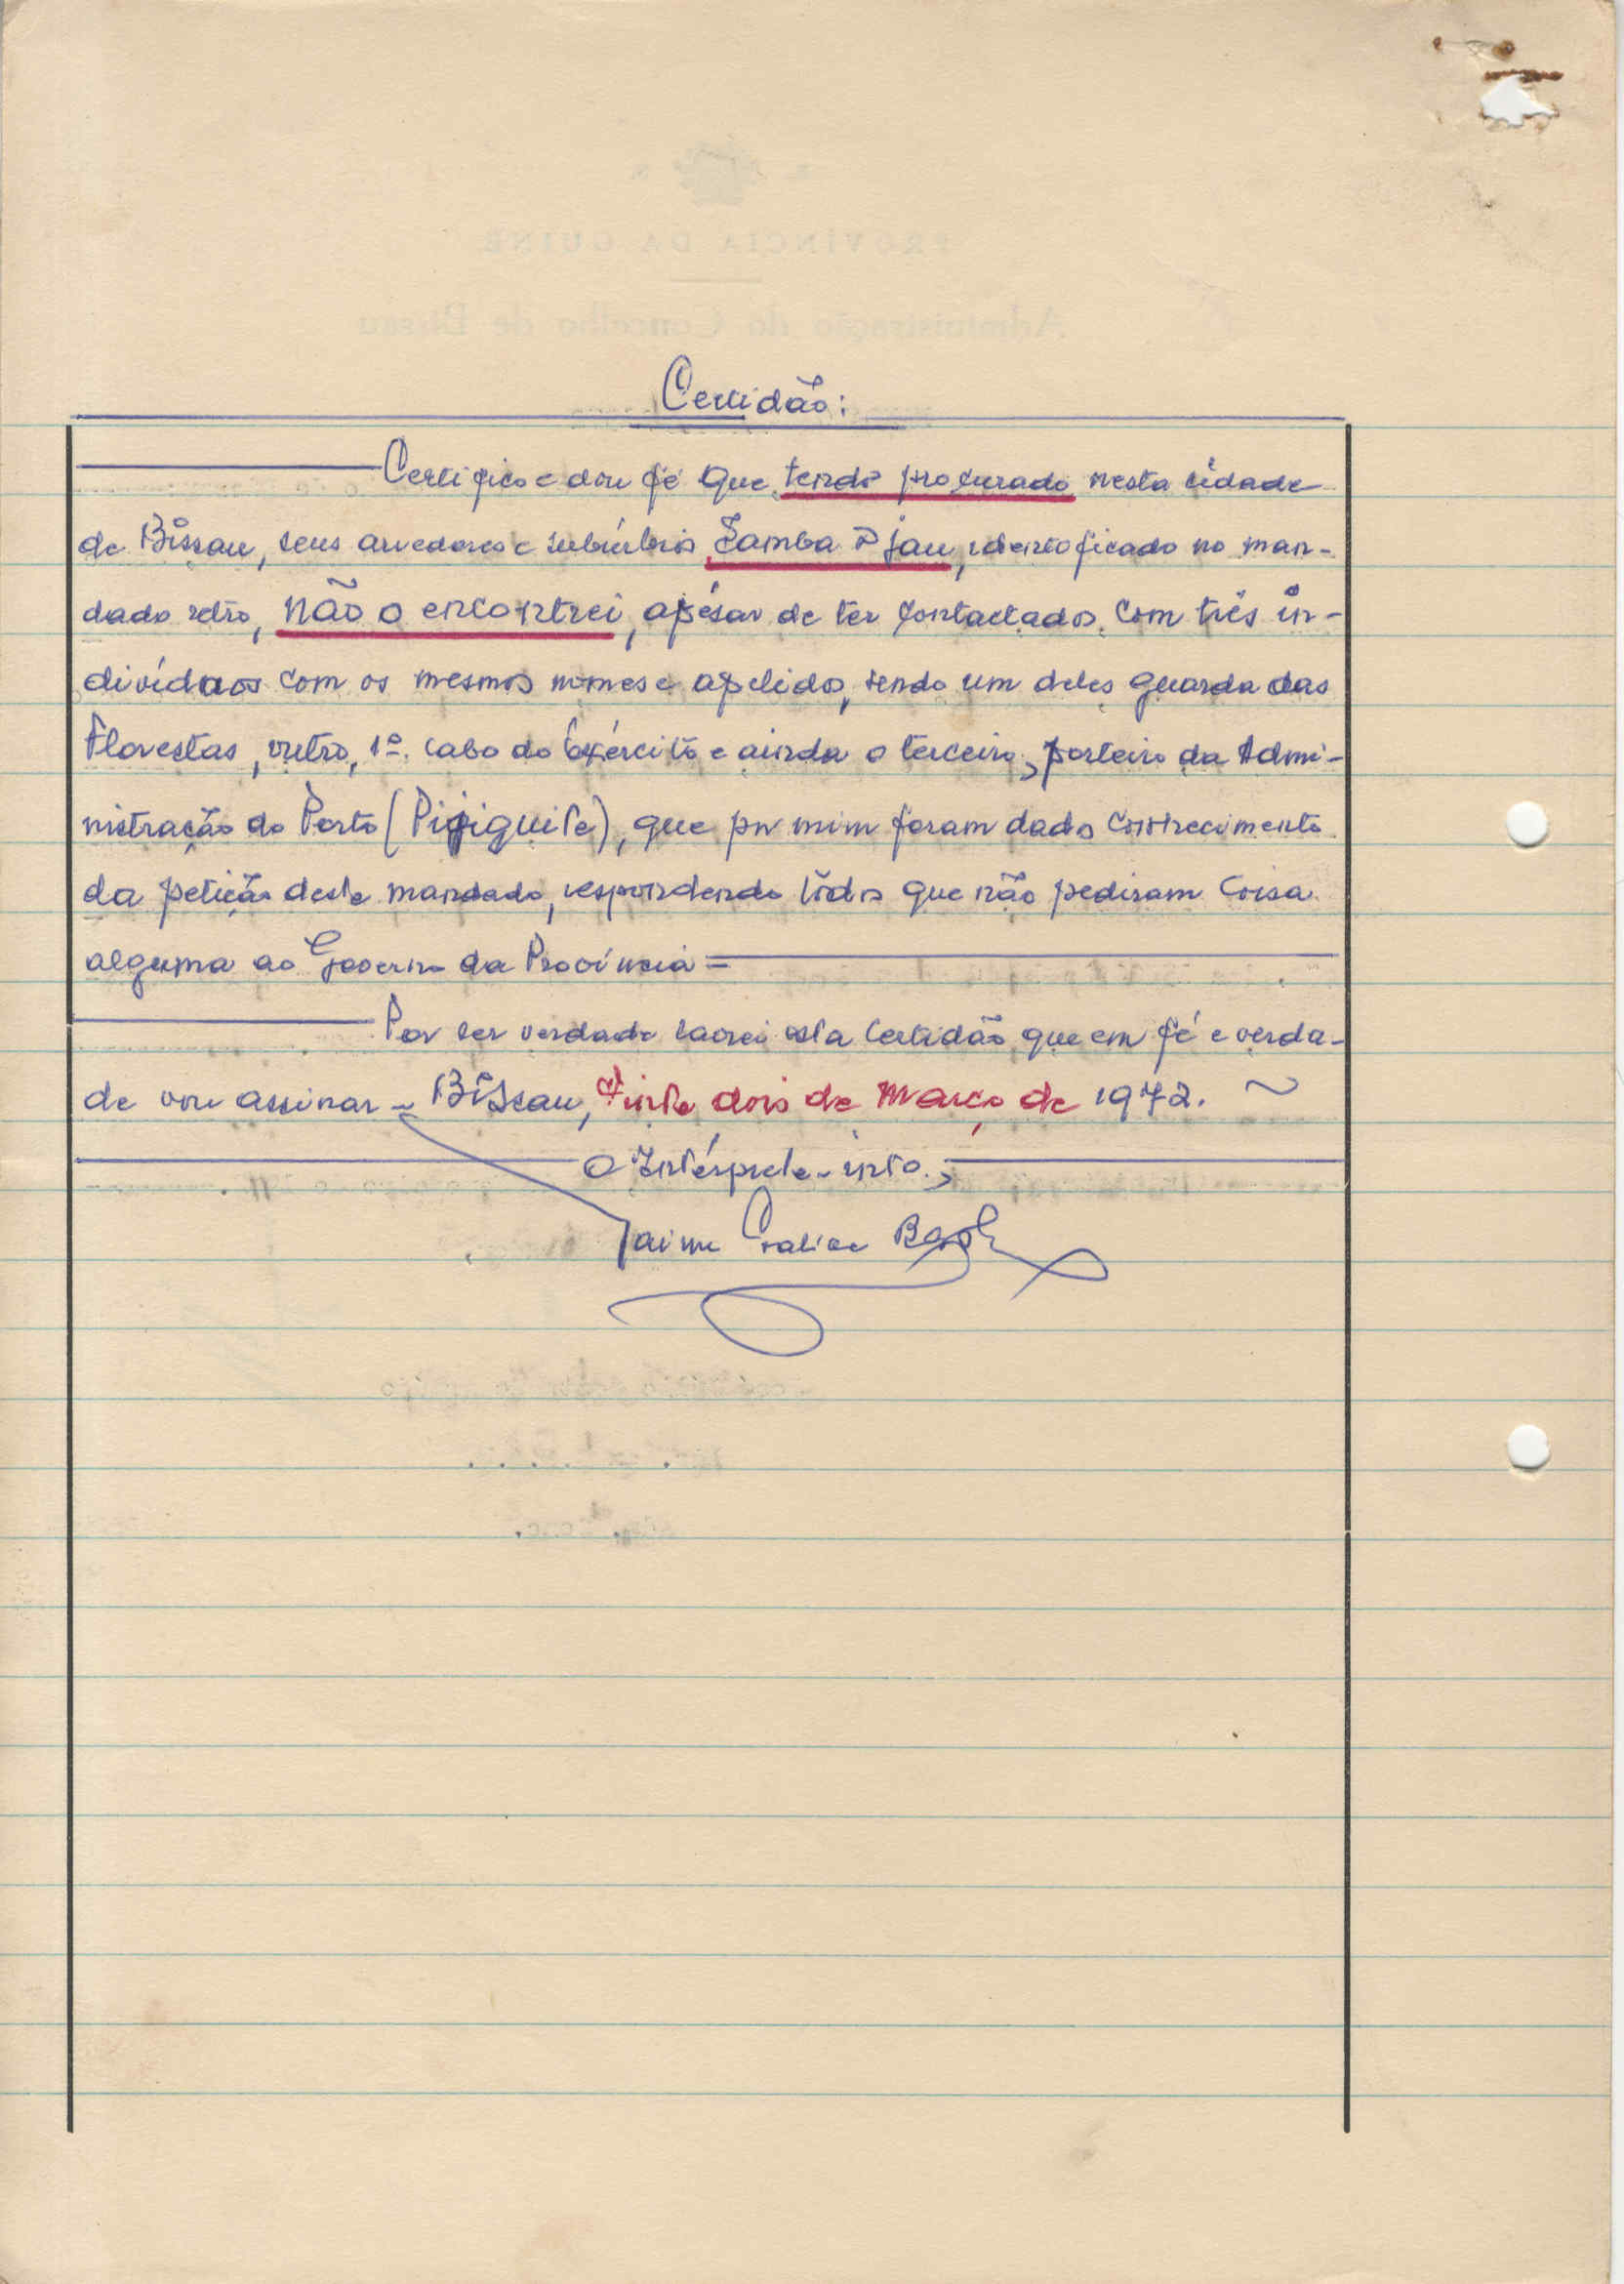 Certidão:
Certifico e dou fé que, tendo procurado nesta cidade
de Bissau, seus arredores e subúrbios Samba Djau, identificado no man-
dado retro, não o encontrei, apésar de ter contactados com três in-
divíduos com os mesmos nomes e apelidos, sendo um deles guarda das
Florestas, outro, 1º. cabo do Exército e ainda o terceiro, porteiro da Admi-
nistração do Porto (Pijiguite), que por mim foram dados conhecimento
da petição deste mandado, respondendo todos que não pediram coisa
alguma ao Governo da Província =
Por ser verdade lavrei esta certidão que em fé e verda-
de vou assinar - Bissau, vinte dois de Março de 1972. ~
O Intérprete-intº.,
Jaime
PROVÍNCIA DA GUINÉ
Administração do Concelho de Bissau